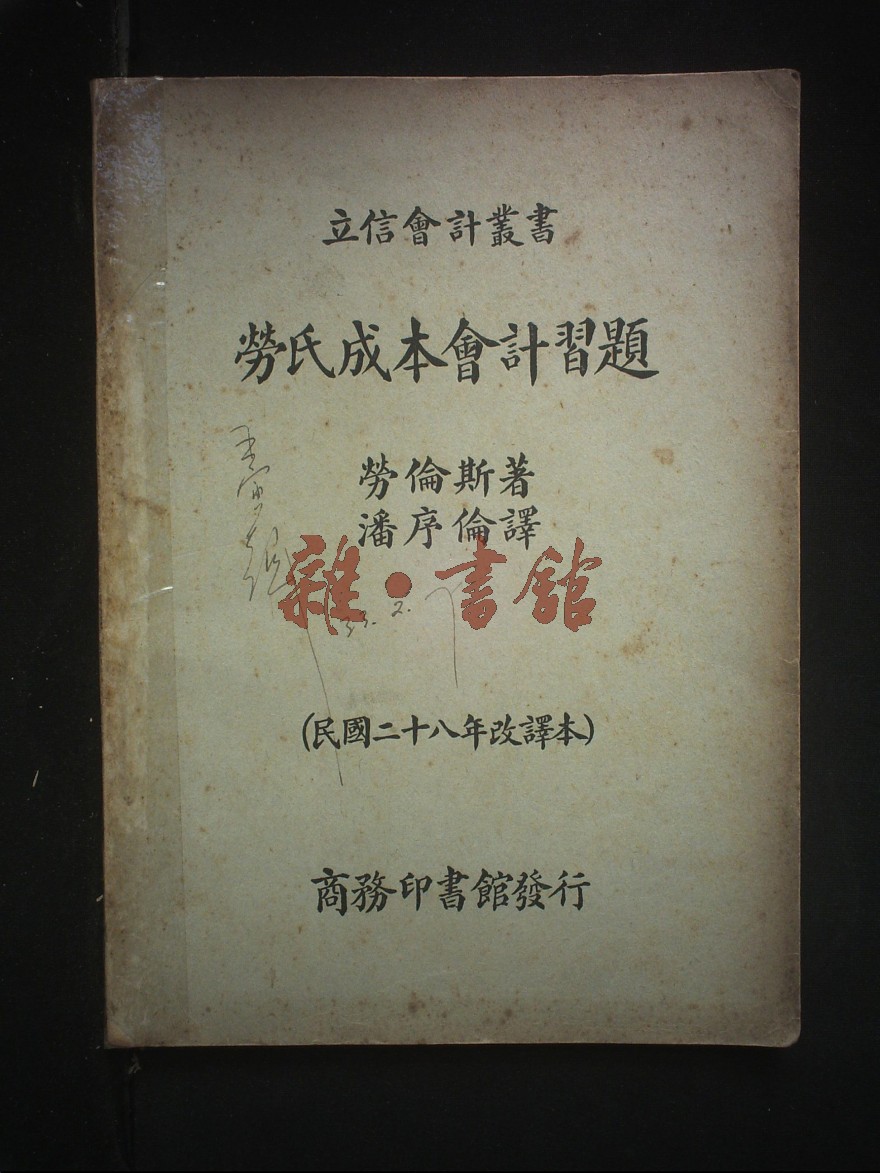 立信會計叢書
勞氏成本會計習題
勞倫斯著
潘序倫譯
雜·書館
53.2.
(民國二十八年改譯本)
商務印書館發行